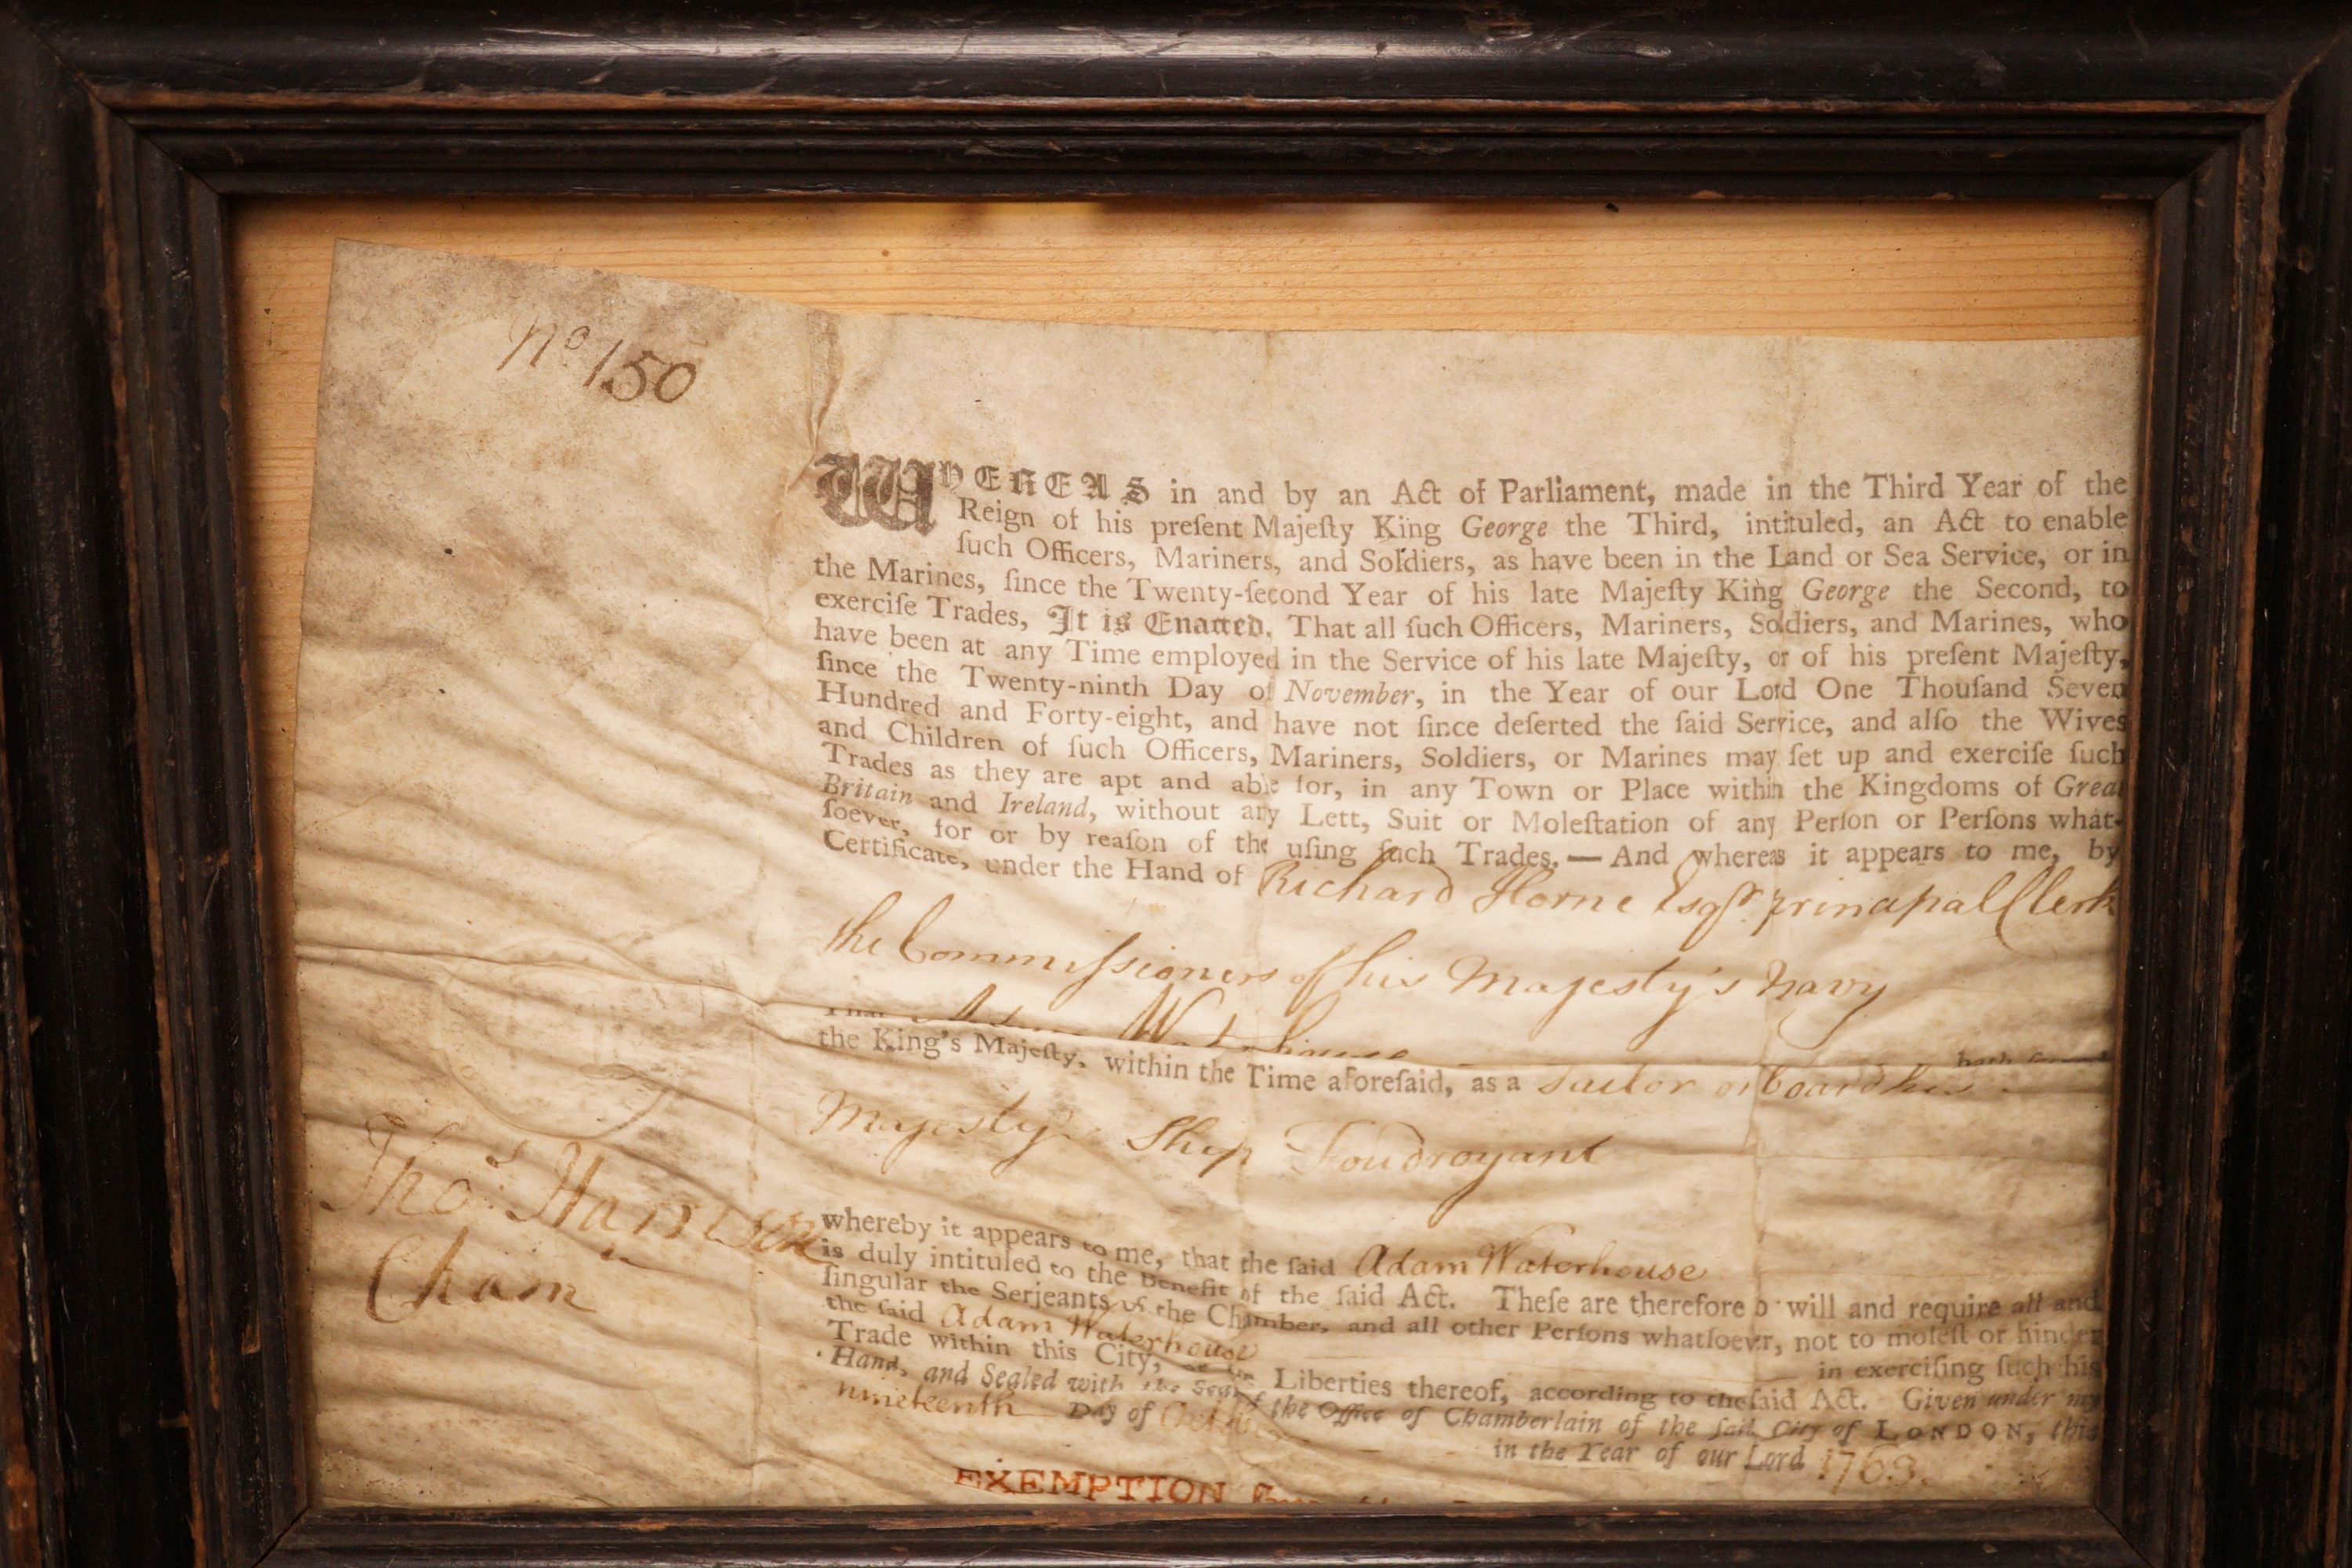 No 150
WHEREAS in and by an Act of Parliament, made in the Third Year of the
Reign of his preſent Majeſty King George the Third, intituled, an Act to enable
ſuch Officers, Mariners, and Soldiers, as have been in the Land or Sea Service, or in
the Marines, ſince the Twenty-ſecond Year of his late Majeſty King George the Second, to
exerciſe Trades, It is Enacted, That all ſuch Officers, Mariners, Soldiers, and Marines, who
have been at any Time employed in the Service of his late Majeſty, or of his preſent Majeſty,
ſince the Twenty-ninth Day of November, in the Year of our Lord One Thouſand Seven
Hundred and Forty-eight, and have not ſince deſerted the ſaid Service, and alſo the Wives
and Children of ſuch Officers, Mariners, Soldiers, or Marines may ſet up and exerciſe ſuch
Trades as they are apt and able for, in any Town or Place within the Kingdoms of Great
Britain and Ireland, without any Lett, Suit or Moleſtation of any Perſon or Perſons what-
ſoever, for or by reaſon of the uſing ſuch Trades. — And whereas it appears to me, by
Certificate, under the Hand of Richard Horne Esqr. principal Clerk
the Commiſsioners of his Majesty's Navy
That Adam Waterhouse hath
the King's Majeſty, within the Time aforeſaid, as a Sailor on board his
Majesty's Ship Foudroyant
Thos. Harrison
Cham
whereby it appears to me, that the ſaid Adam Waterhouse
is duly intituled to the Benefit of the ſaid Act. Theſe are therefore to will and require all and
ſingular the Serjeants of the Chamber, and all other Perſons whatſoever, not to moleſt or hinder
the ſaid Adam Waterhouse in exerciſing ſuch his
Trade within this City, or the Liberties thereof, according to the ſaid Act. Given under my
Hand, and Sealed with the Seal of the Office of Chamberlain of the ſaid City of LONDON, this
nineteenth Day of in the Year of our Lord 1763.
EXEMPTION